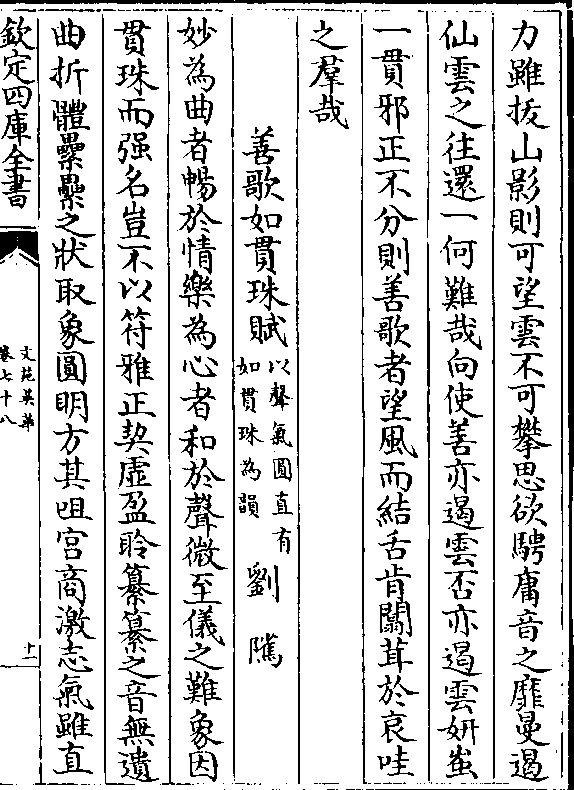 力雖拔山影則可望雲不可攀思欲騁庸音之靡曼遏
仙雲之往還一何難哉向使善亦遏雲否亦遏雲妍蚩
一貫邪正不分則善歌者望風而結舌肯闒茸於哀哇
之羣哉
善歌如貫珠賦以聲氣圓直有如貫珠為韻 劉隲
妙為曲者暢於情樂為心者和於聲微至儀之難象因
貫珠而强名豈不以符雅正契虛盈聆纂纂之音無遺
曲折體纍纍之狀取象圓明方其咀宮商激志氣雖直
欽定四庫全書
文苑英華
卷七十八
十一